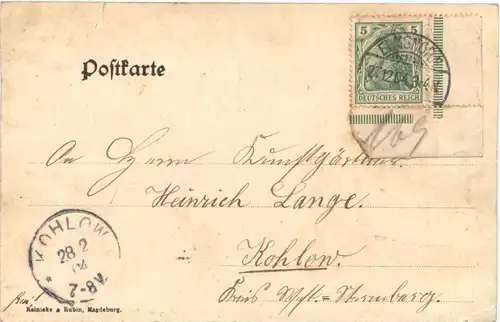 Postkarte
5 5
DEUTSCHES REICH
109
An Herrn Kunstgärtner
Heinrich Lange.
in
Kohlow.
Kreis West-Sternberg.
KOHLOW
28 2
04
7-8V.
Reinicke & Rubin, Magdeburg.